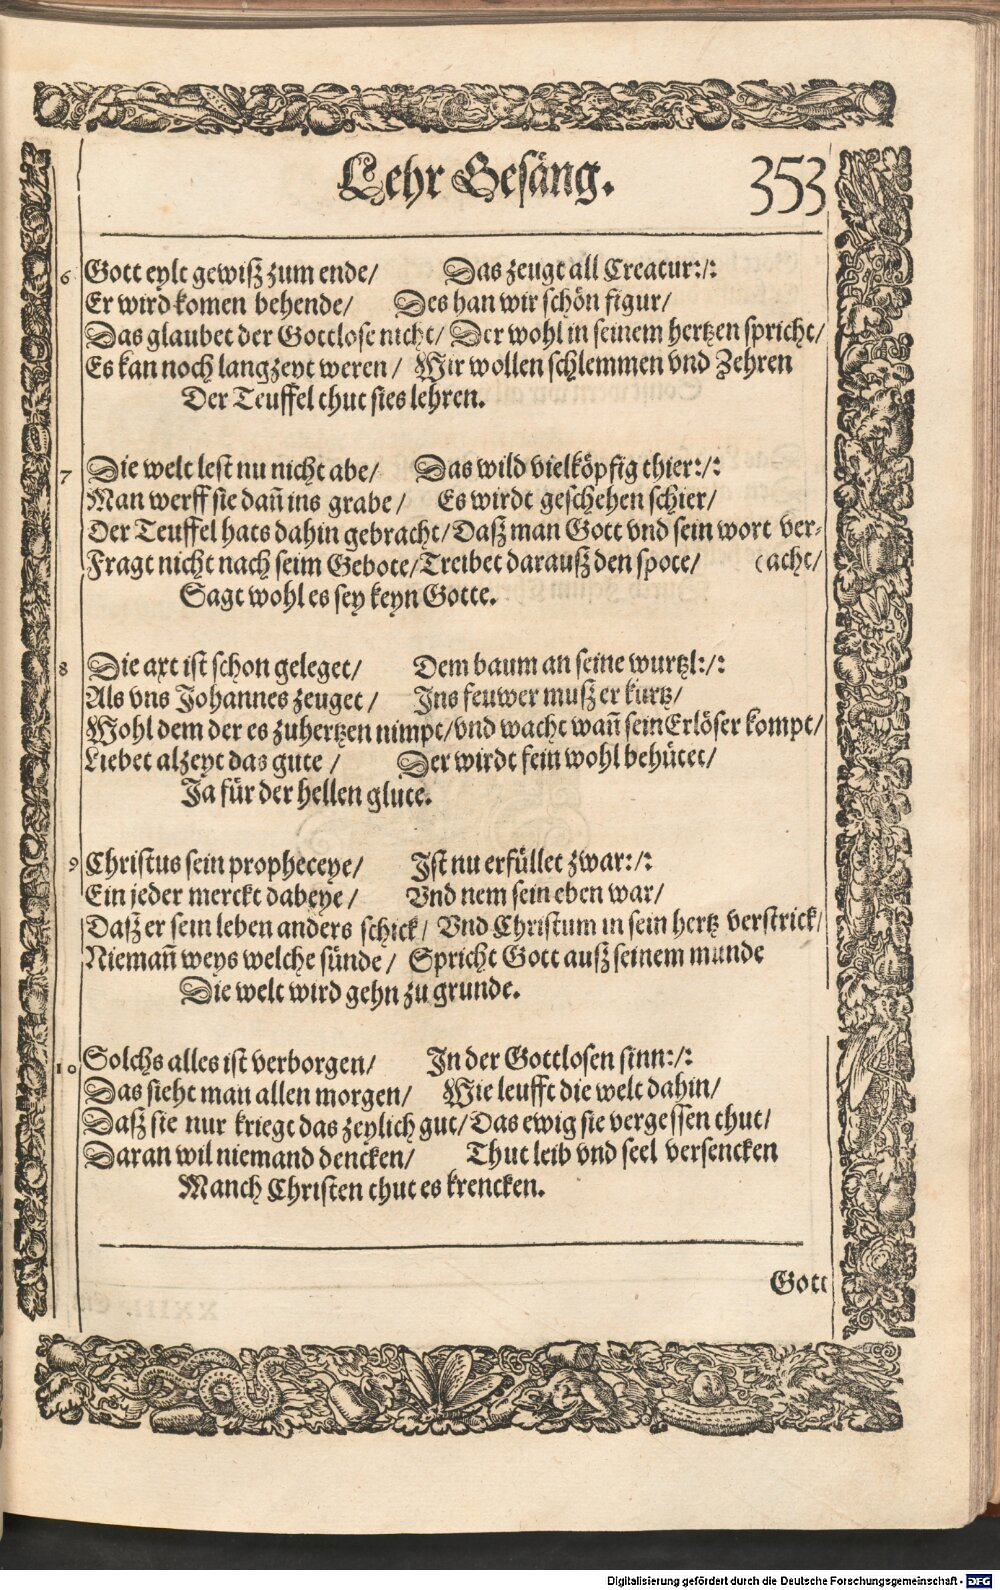 Lehr Gesäng. 353
6 Gott eylt gewiß zum ende/ Das zeugt all Creatur:/:
Er wird komen behende/ Des han wir schön figur/
Das glaubet der Gottlose nicht/ Der wohl in seinem hertzen spricht/
Es kan noch lang zeyt weren/ Wir wollen schlemmen vnd Zehren
Der Teuffel thut sies lehren.
7 Die welt lest nu nicht abe/ Das wild vielköpfig thier:/:
Man werff sie dañ ins grabe/ Es wirdt geschehen schier/
Der Teuffel hats dahin gebracht/ Daß man Gott vnd sein wort ver-
Fragt nicht nach seim Gebote/ Treibet darauß den spote/ (acht/
Sagt wohl es sey keyn Gotte.
8 Die axt ist schon geleget/ Dem baum an seine wurtzl:/:
Als vns Johannes zeuget/ Ins feuwer muß er kurtz/
Wohl dem der es zuhertzen nimpt/ vnd wacht wañ sein Erlöser kompt/
Liebet alzeyt das gute/ Der wirdt fein wohl behütet/
Ja für der hellen glute.
9 Christus sein propheceye/ Ist nu erfüllet zwar:/:
Ein jeder merckt dabeye/ Vnd nem sein eben war/
Daß er sein leben anders schick/ Vnd Christum in sein hertz verstrick/
Niemañ weys welche sünde/ Spricht Gott auß seinem munde
Die welt wird gehn zu grunde.
10 Solchs alles ist verborgen/ In der Gottlosen sinn:/:
Das sieht man allen morgen/ Wie leufft die welt dahin/
Daß sie nur kriegt das zeylich gut/ Das ewig sie vergessen thut/
Daran wil niemand dencken/ Thut leib vnd seel versencken
Manch Christen thut es krencken.
Gott
Digitalisierung gefördert durch die Deutsche Forschungsgemeinschaft - DFG